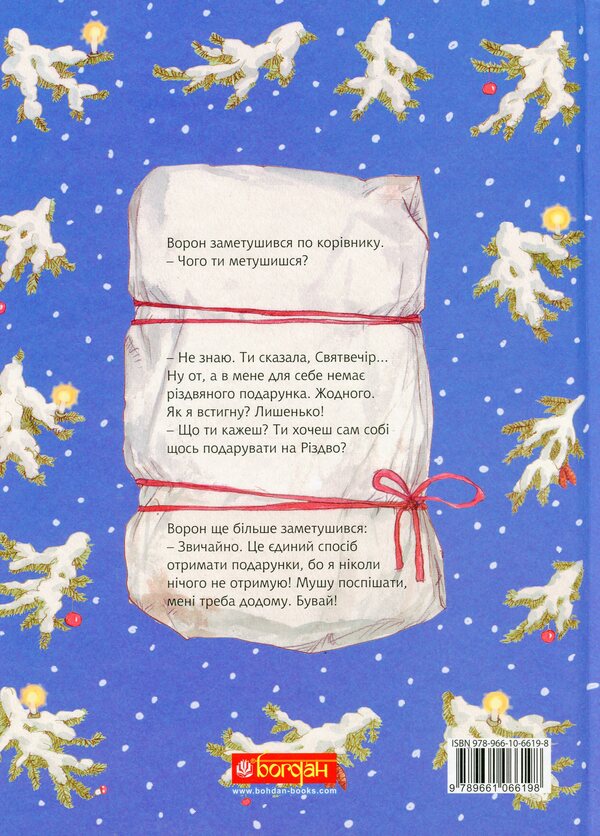 Ворон заметушився по корівнику.
– Чого ти метушишся?
– Не знаю. Ти сказала, Святвечір...
Ну от, а в мене для себе немає
різдвяного подарунка. Жодного.
Як я встигну? Лишенько!
– Що ти кажеш? Ти хочеш сам собі
щось подарувати на Різдво?
Ворон ще більше заметушився:
– Звичайно. Це єдиний спосіб
отримати подарунки, бо я ніколи
нічого не отримую! Мушу поспішати,
мені треба додому. Бувай!
богдан
www.bohdan-books.com
ISBN 978-966-10-6619-8
9 789661 066198